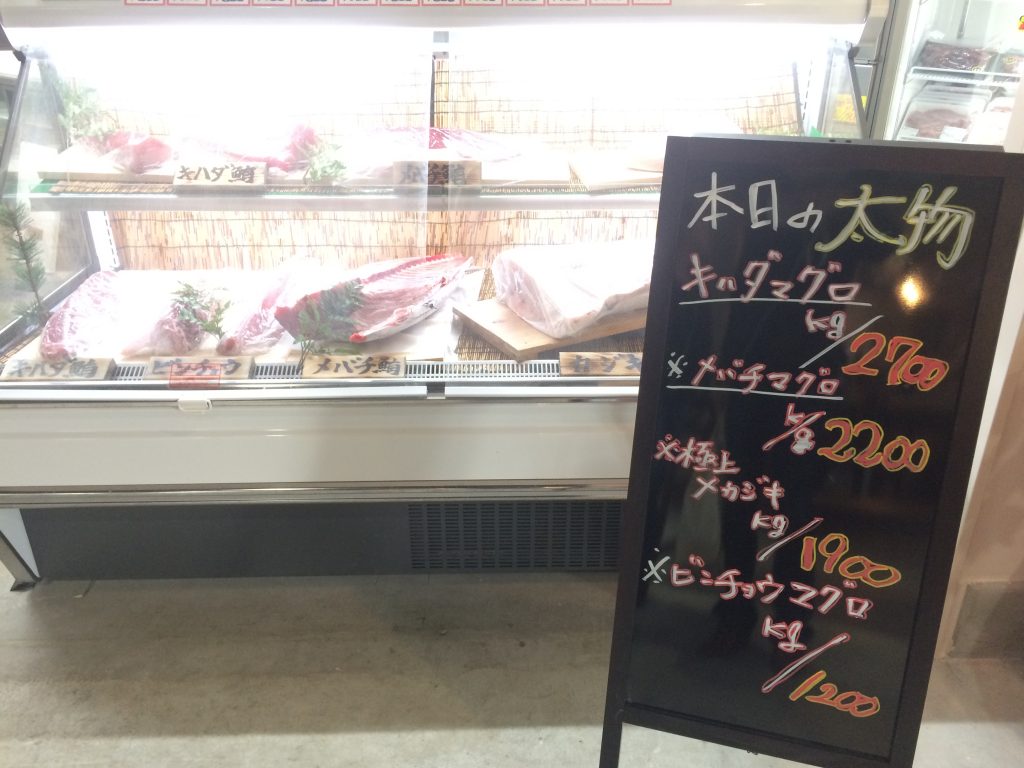 キハダ鮪
キハダ鮪
ビンチョウ
メバチ鮪
本日の太物
キハダマグロ
kg/2700
※メバチマグロ
kg/2200
※極上
メカジキ
kg/1900
※ビンチョウマグロ
kg/1200